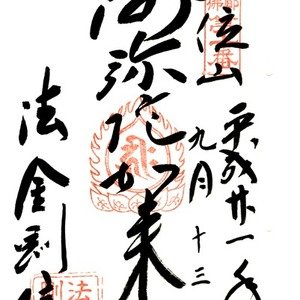 五位山
平成廿一年
九月十三
阿弥陀如来
法金剛院